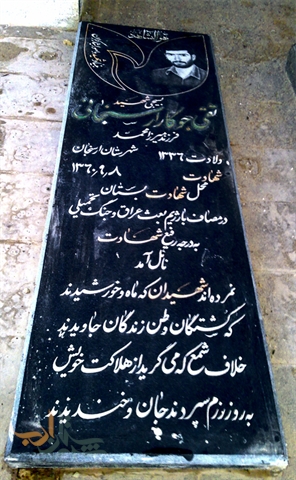 بسیجی شهید
تقی جوکار ارسنجانی
فرزند میرزا محمد
ولادت ۱۳۳۶ شهرستان ارسنجان
شهادت ۱۳۶۰،۹،۸
محل شهادت بستان
در مصاف با رژیم بعث عراق و جنگ تحمیلی
به درجه رفیع شهادت
نائل آمد
نمرده اند شهیدان که ماه و خورشیدند
که کشتگان وطن زندگان جاویدند
خلاف شمع که می گرید از هلاکت خویش
به روز رزم سپردند جان و خندیدند